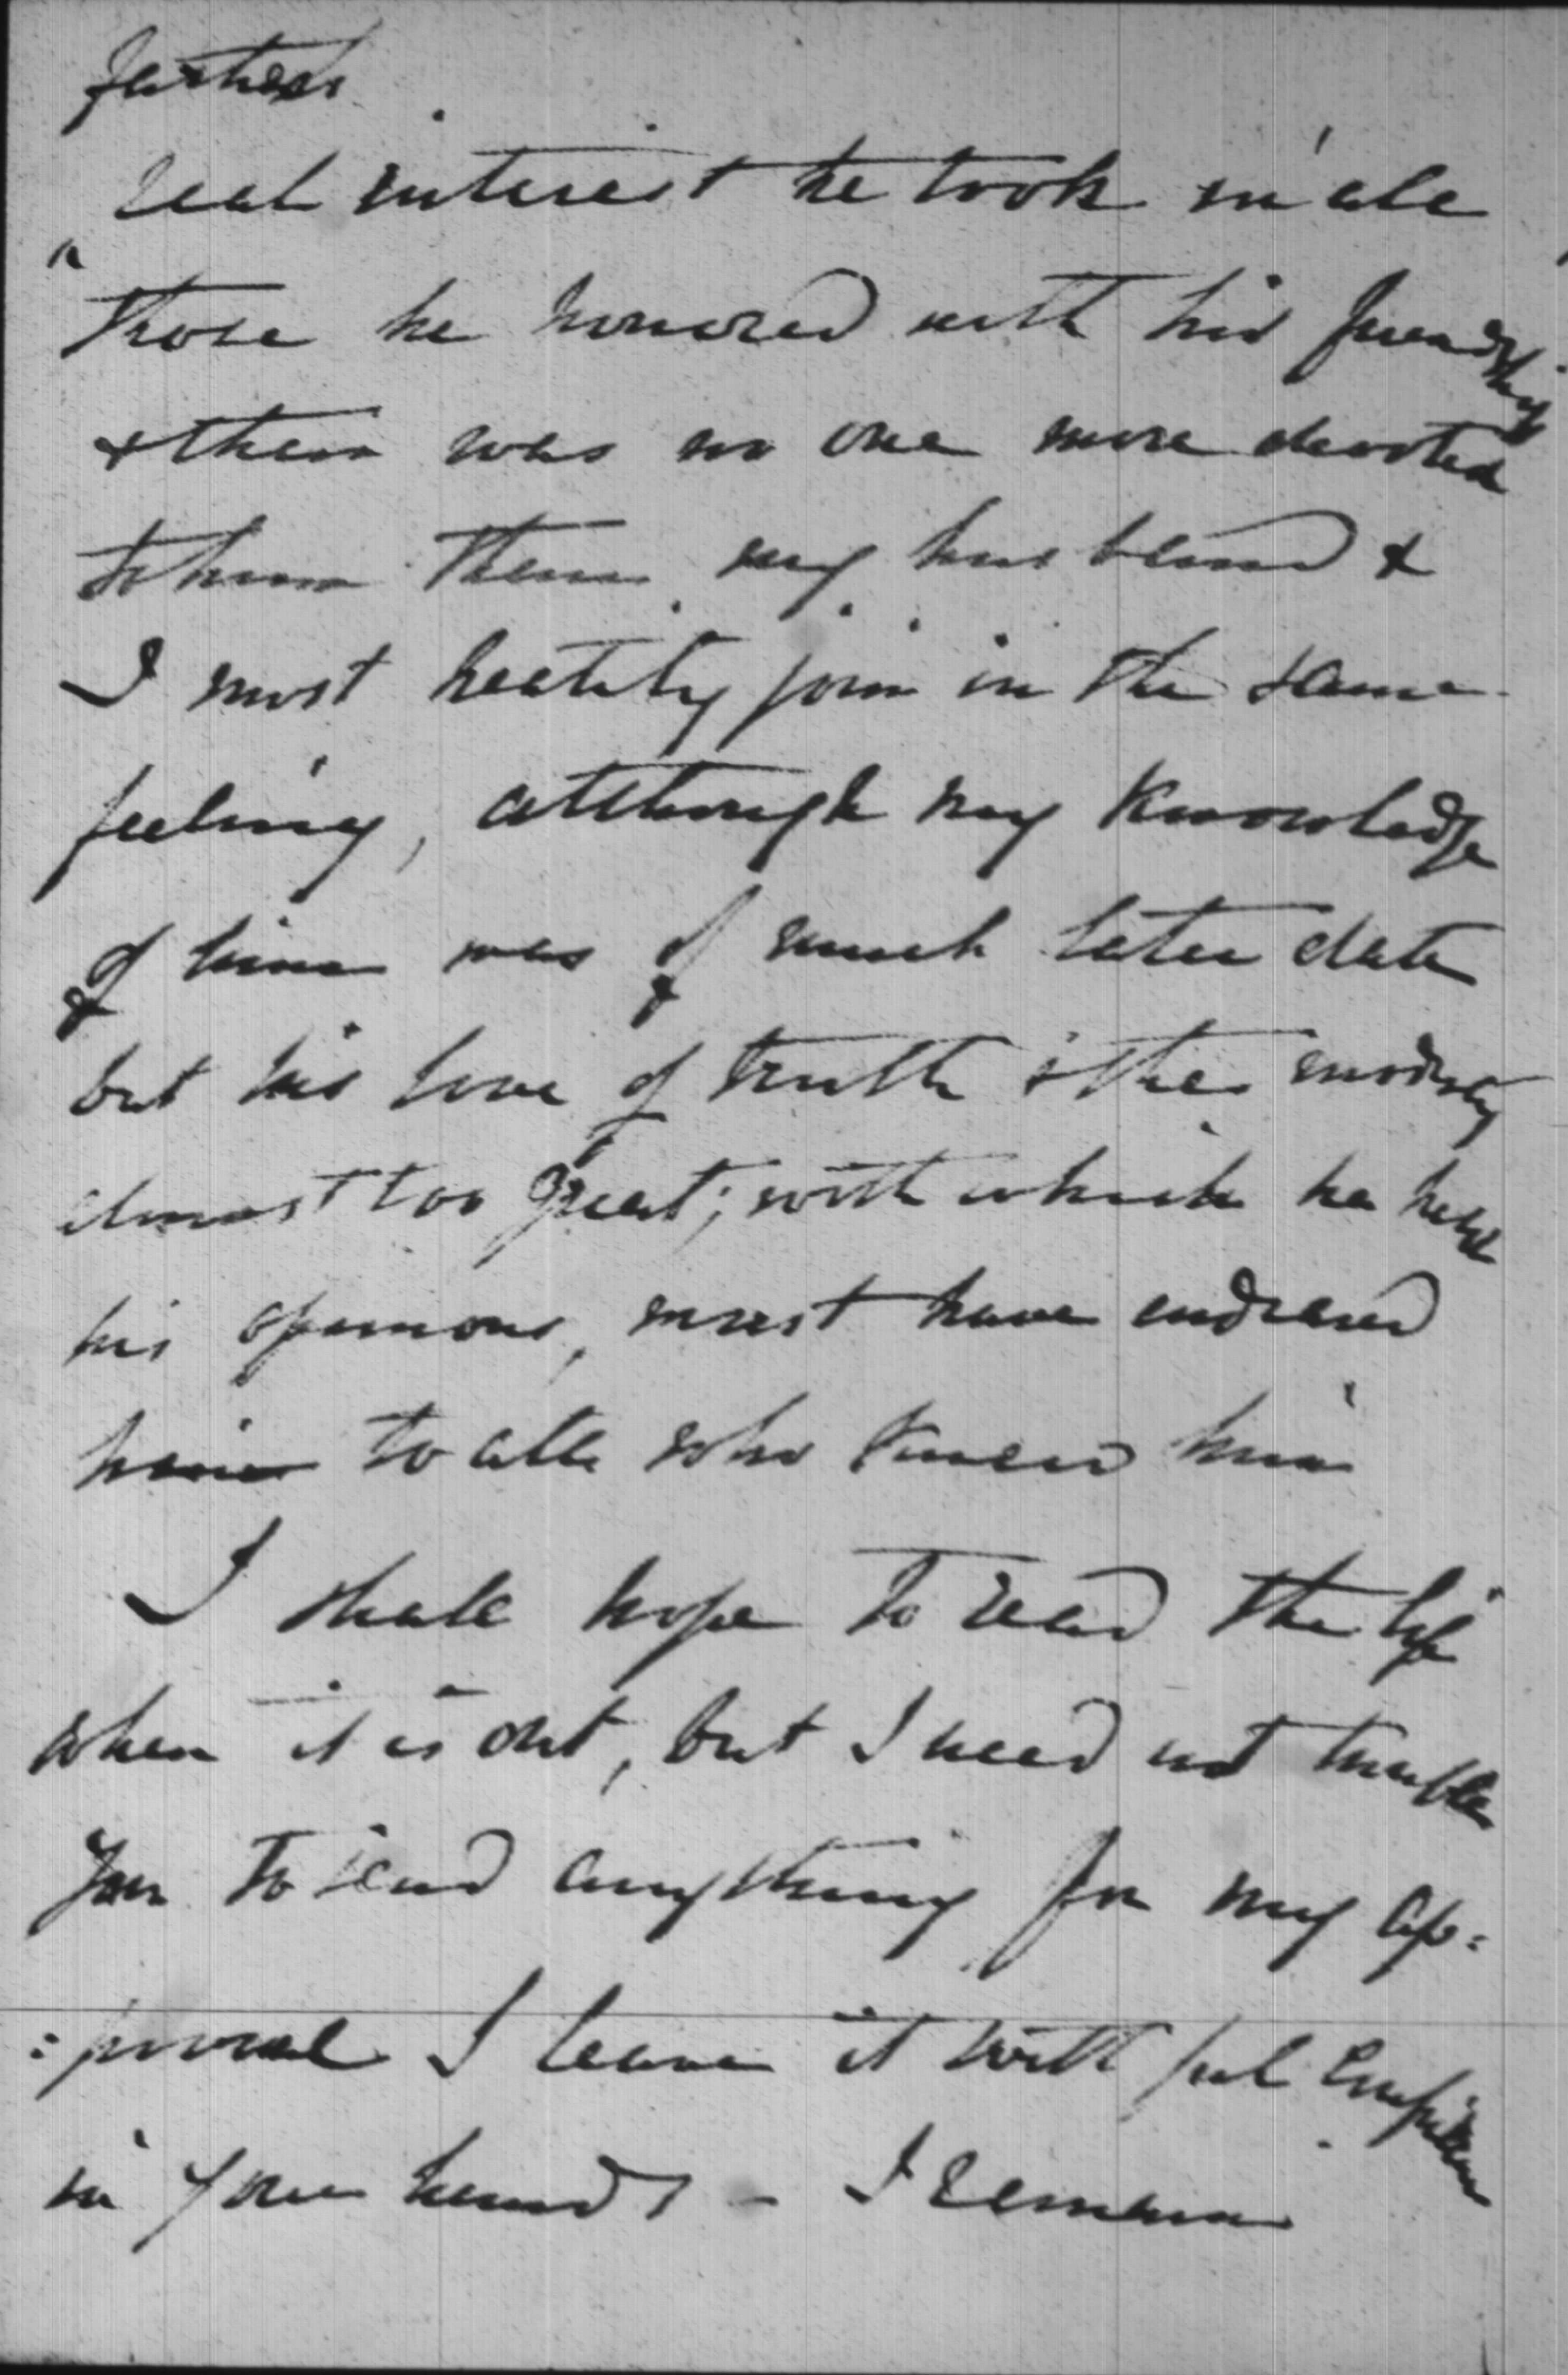 real interest he took in all
those he honored with his friendship
& there was no one more devoted
to him than my husband &
I most heartily join in the same
feeling, although my knowledge
of him was of much later date
but his love of truth & the modesty
almost too great; with which he held
his opinions, must have endeared
him to all who knew him
I shall hope to read the life
when it is out, but I need not trouble
you to send anything for my ap=
=proval I leave it with full confidence
in your hands - I remain